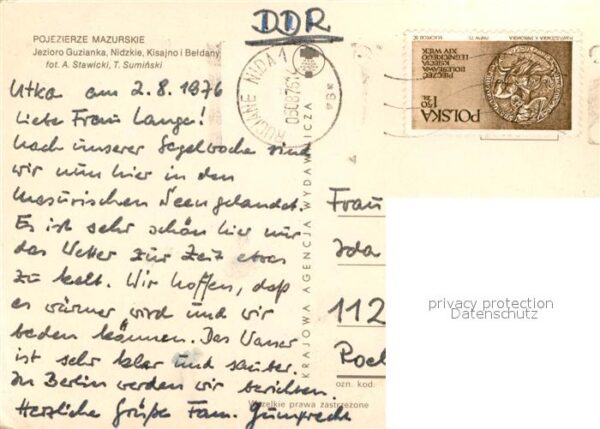 DDR
POJEZIERZE MAZURSKIE
Jezioro Guzianka, Nidzkie, Kisajno i Bełdany
fot. A. Stawicki, T. Sumiński
Utka am 2.8.1976
Liebe Frau Lange!
Nach unserer Segelwoche sind
wir nun hier in den
Masurischen Seen gelandet.
Es ist sehr schön hier nur
das Wetter zur Zeit etwas
zu kalt. Wir hoffen, daß
es wärmer wird und wir
baden können. Das Wasser
ist sehr klar und sauber.
In Berlin werden wir berichten.
Herzliche Grüße Fam.
RUCIANE NIDA 1
KRAJOWA AGENCJA WYDAWNICZA
PIECZĘĆ
KSIĘCIA
BOLESŁAWA
LEGNICKIEGO
XIV WIEK
POLSKA
1,50 ZŁ
Frau
Ida
112
ozn. kod:
Wszelkie prawa zastrzeżone
privacy protection
Datenschutz